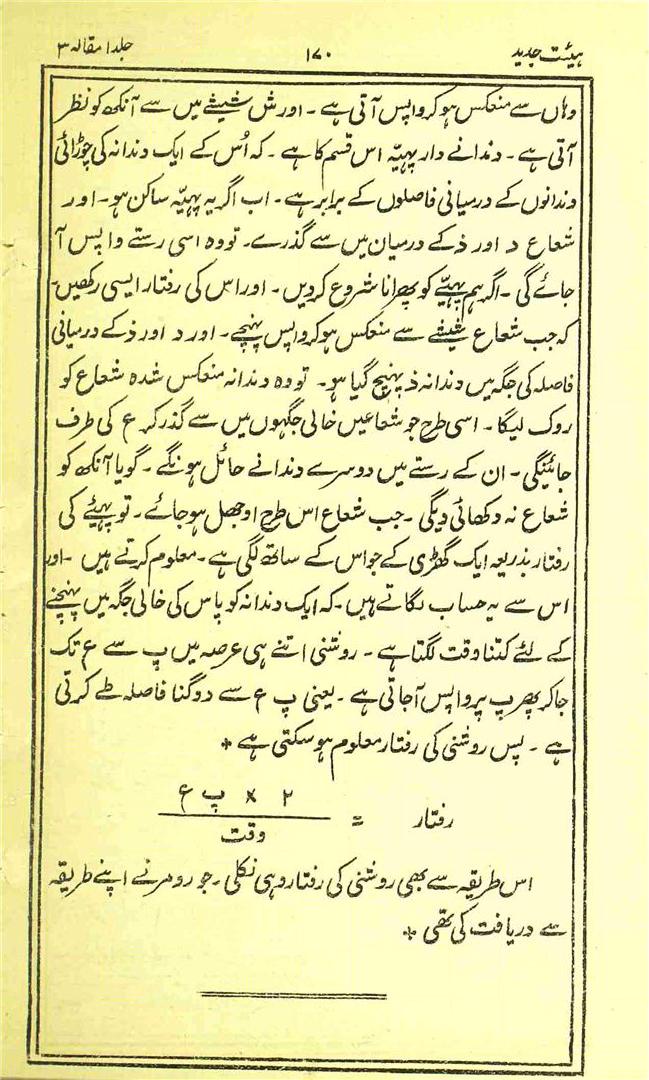 ہیئت جدید ۱۷۰ جلد ۱ مقالہ ۳
وہاں سے منعکس ہو کر واپس آتی ہے ۔ اور ش شیشے میں سے آنکھ کو نظر
آتی ہے ۔ دندانے دار پہیّہ اس قسم کا ہے ۔ کہ اُس کے ایک دندانہ کی چوڑائی
دندانوں کے درمیانی فاصلوں کے برابر ہے ۔ اب اگر یہ پہیّہ ساکن ہو ۔ اور
شعاع د اور ذ کے درمیان میں سے گذرے ۔ تو وہ اسی رستے واپس آ
جائے گی ۔ اگر ہم پہیّے کو پھرانا شروع کر دیں ۔ اور اس کی رفتار ایسی رکھیں ۔
کہ جب شعاع شیشے سے منعکس ہو کر واپس پہنچے ۔ اور د اور ذ کے درمیانی
فاصلہ کی جگہ میں دندانہ ذ پہنچ گیا ہو ۔ تو وہ دندانہ منعکس شدہ شعاع کو
روک لیگا ۔ اسی طرح جو شعاعیں خالی جگہوں میں سے گذر کر ع کی طرف
جائینگی ۔ ان کے رستے میں دوسرے دندانے حائل ہونگے ۔ گویا آنکھ کو
شعاع نہ دکھائی دیگی ۔ جب شعاع اس طرح اوجھل ہو جائے ۔ تو پہیّے کی
رفتار بذریعہ ایک گھڑی کے جو اس کے ساتھ لگی ہے ۔ معلوم کرتے ہیں ۔ اور
اس سے یہ حساب لگاتے ہیں ۔ کہ ایک دندانہ کو پاس کی خالی جگہ میں پہنچنے
کے لئے کتنا وقت لگتا ہے ۔ روشنی اتنے ہی عرصہ میں پ سے ع تک
جا کر پھر پ پر واپس آ جاتی ہے ۔ یعنی پ ع سے دوگنا فاصلہ طے کرتی
ہے ۔ پس روشنی کی رفتار معلوم ہو سکتی ہے *
۲ × پ ع
رفتار =
وقت
اس طریقہ سے بھی روشنی کی رفتار وہی نکلی ۔ جو رومر نے اپنے طریقہ
سے دریافت کی تھی *